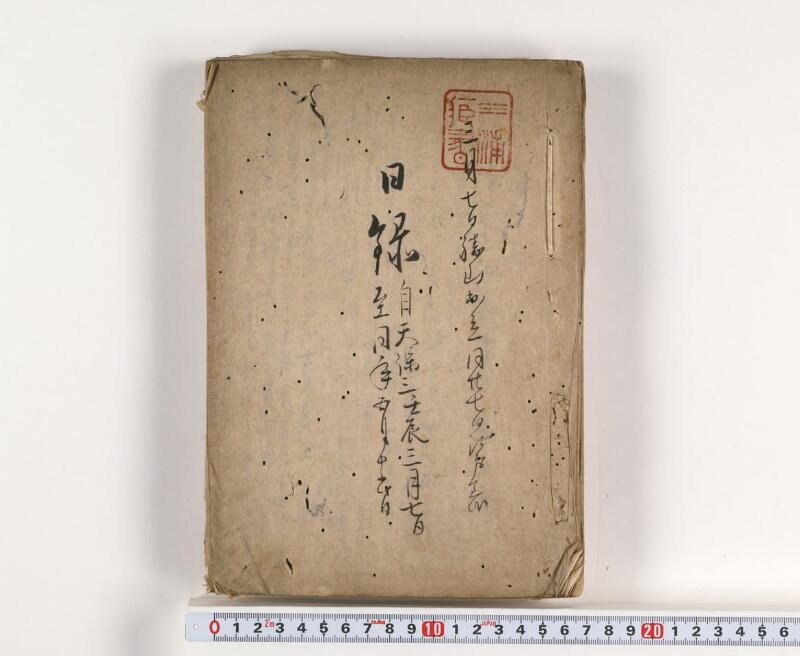 三浦
三月七日勝山出立同廿七日江戸着
日録
自天保三壬辰三月七日
至同年月十日
0 1 2 2m 3 4 5 6 7 8 9 10 1 2 JAPAN 3 4 5 6 7 8 9 20 1 2 3 4 5 6